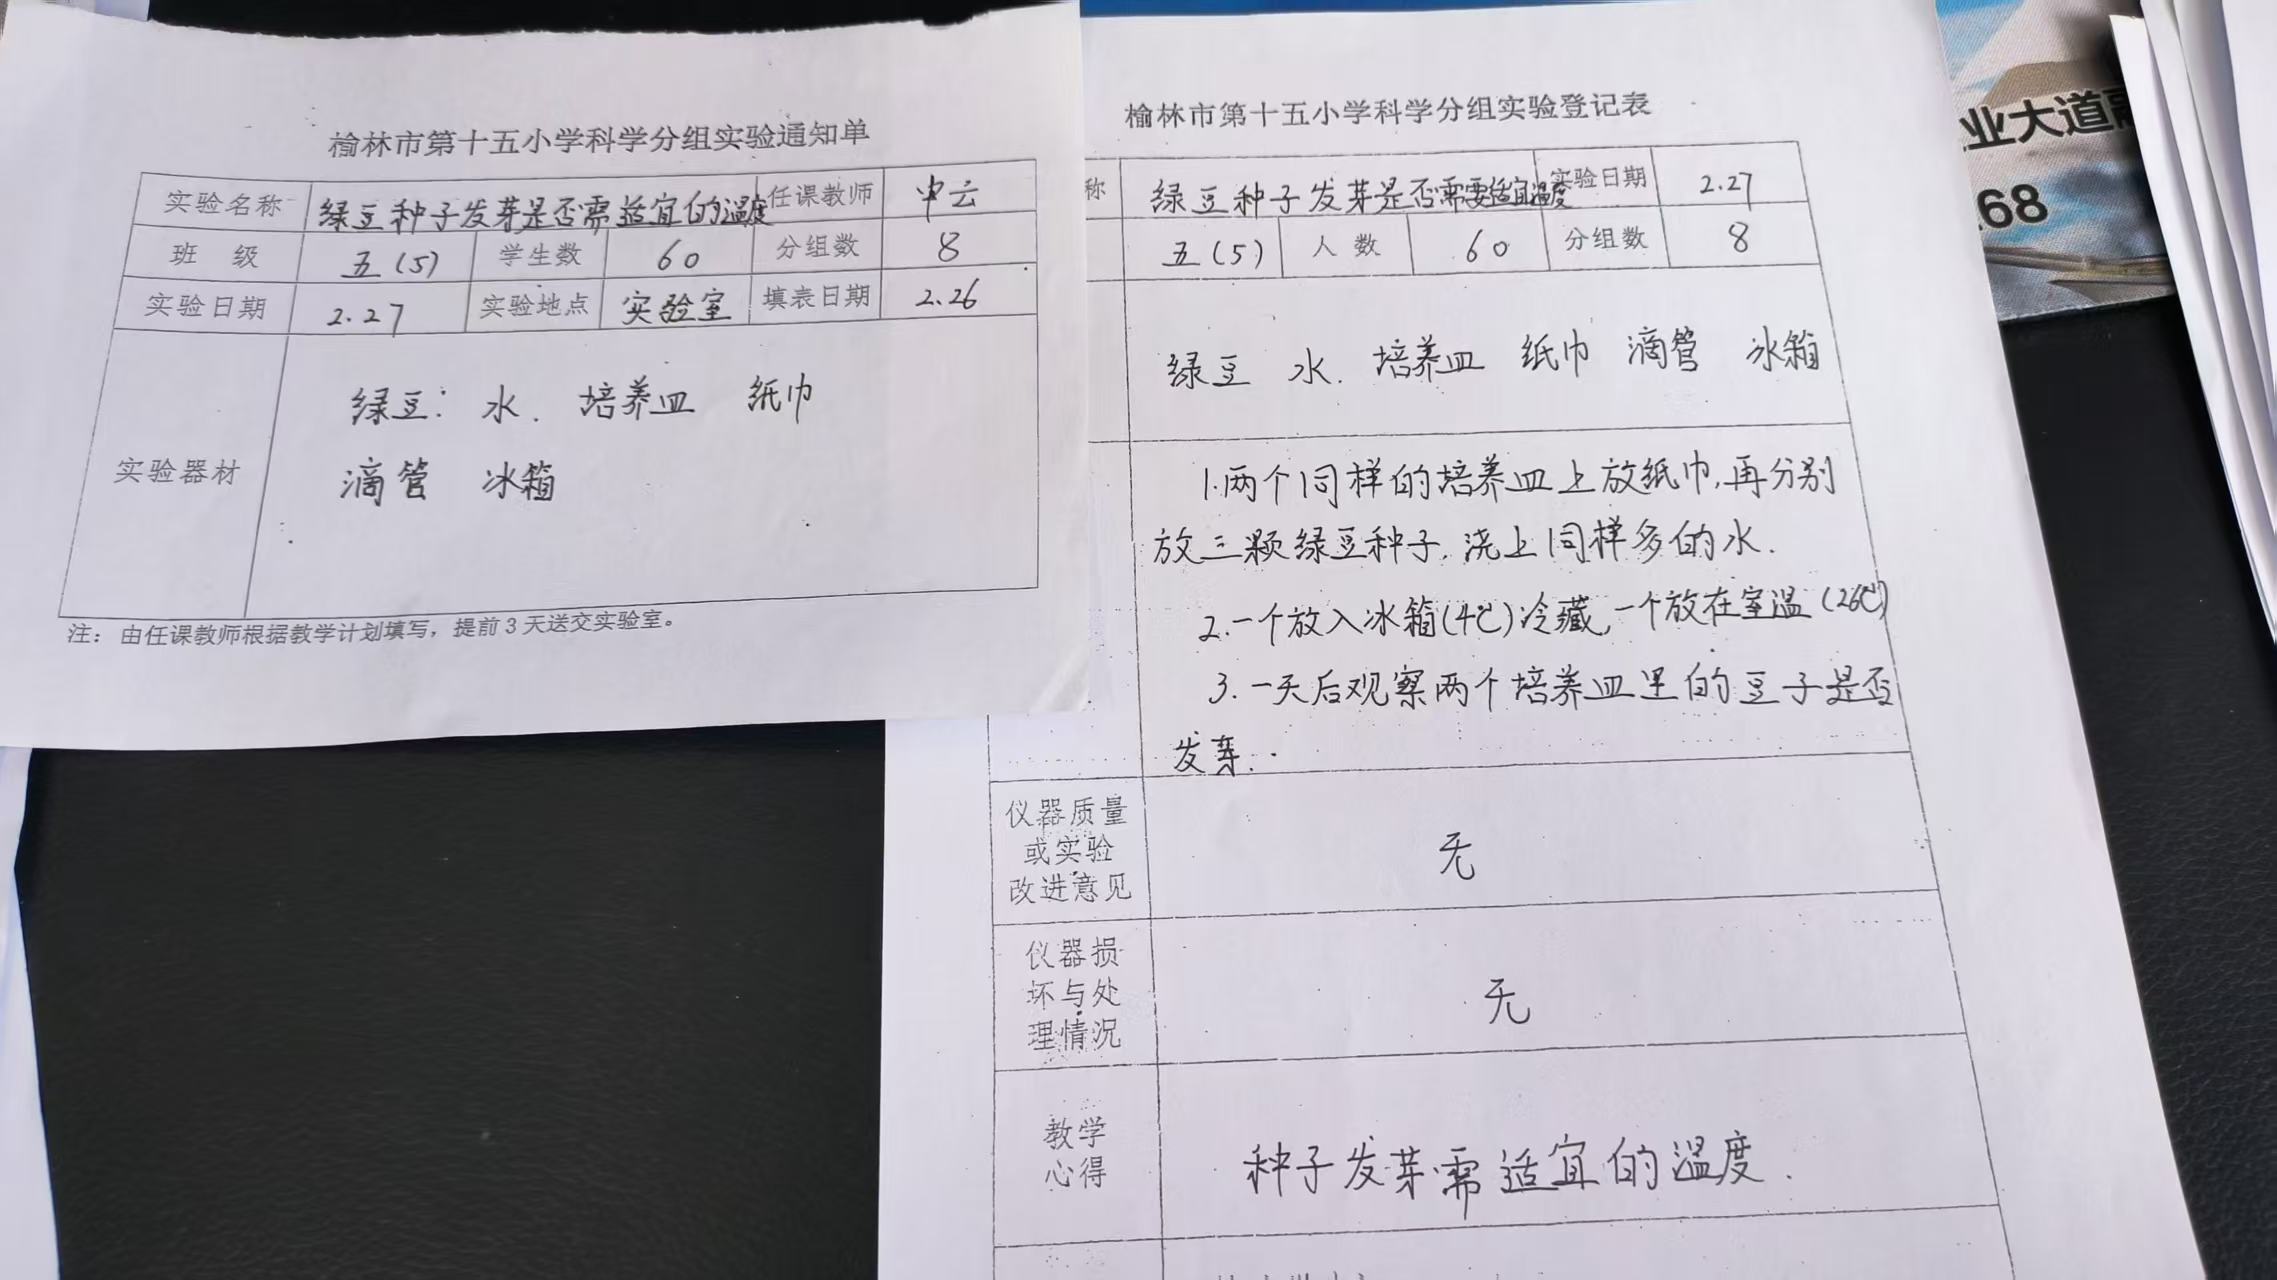 榆林市第十五小学科学分组实验通知单
实验名称 绿豆种子发芽是否需适宜的温度 任课教师 申云
班 级 五(5) 学生数 60 分组数 8
实验日期 2.27 实验地点 实验室 填表日期 2.26
实验器材
绿豆: 水. 培养皿 纸巾
滴管 冰箱
注：由任课教师根据教学计划填写，提前3天送交实验室。
榆林市第十五小学科学分组实验登记表
称 绿豆种子发芽是否需要适宜温度 实验日期 2.27
五(5) 人数 60 分组数 8
绿豆 水. 培养皿 纸巾 滴管 冰箱
1.两个同样的培养皿上放纸巾,再分别
放三颗绿豆种子,浇上同样多的水.
2.一个放入冰箱(4℃)冷藏,一个放在室温(26℃)
3.一天后观察两个培养皿里的豆子是否
发芽.
仪器质量
或实验
改进意见
无
仪器损
坏与处
理情况
无
教学
心得
种子发芽需适宜的温度.
业大道
68